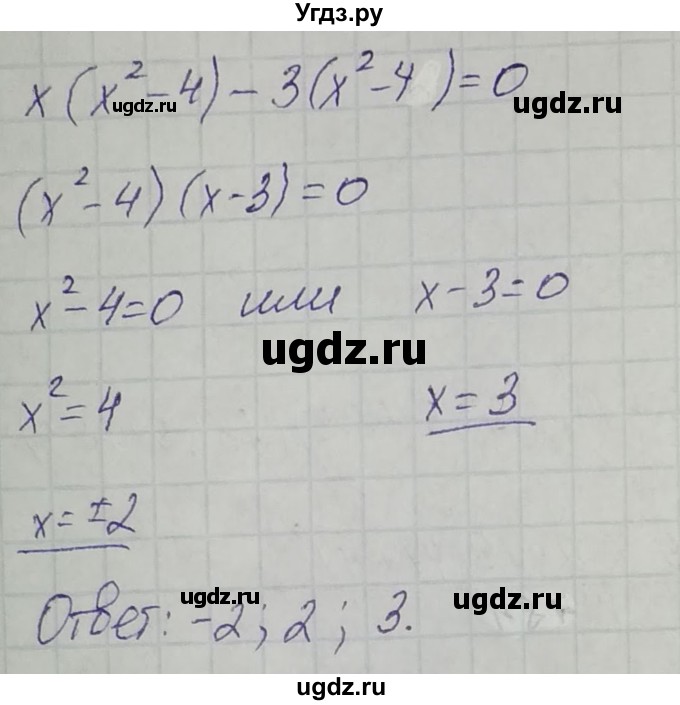 Угдз.ру
x(x²-4)-3(x²-4)=0
ugdz.ru ugdz.ru
(x²-4)(x-3)=0
x²-4=0 или x-3=0
ugdz.ru
x²=4 x=3
x=±2
ugdz.ru ugdz.ru
Ответ: -2; 2; 3.
ugdz.ru